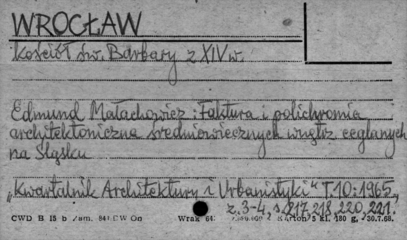 WROCŁAW
Kościół św. Barbary z XIV w.
Edmund Małachowicz: Faktura i polichromia
architektoniczna średniowiecznych wnętrz ceglanych
na Śląsku
„Kwartalnik Architektury i Urbanistyki" T.10:1965,
z. 3-4, s. 217, 218, 220, 221.
CWD B 15 b Zam. 841 CW Op Wrak 64 Karton 5 kl. 180 g, 30.7.68.